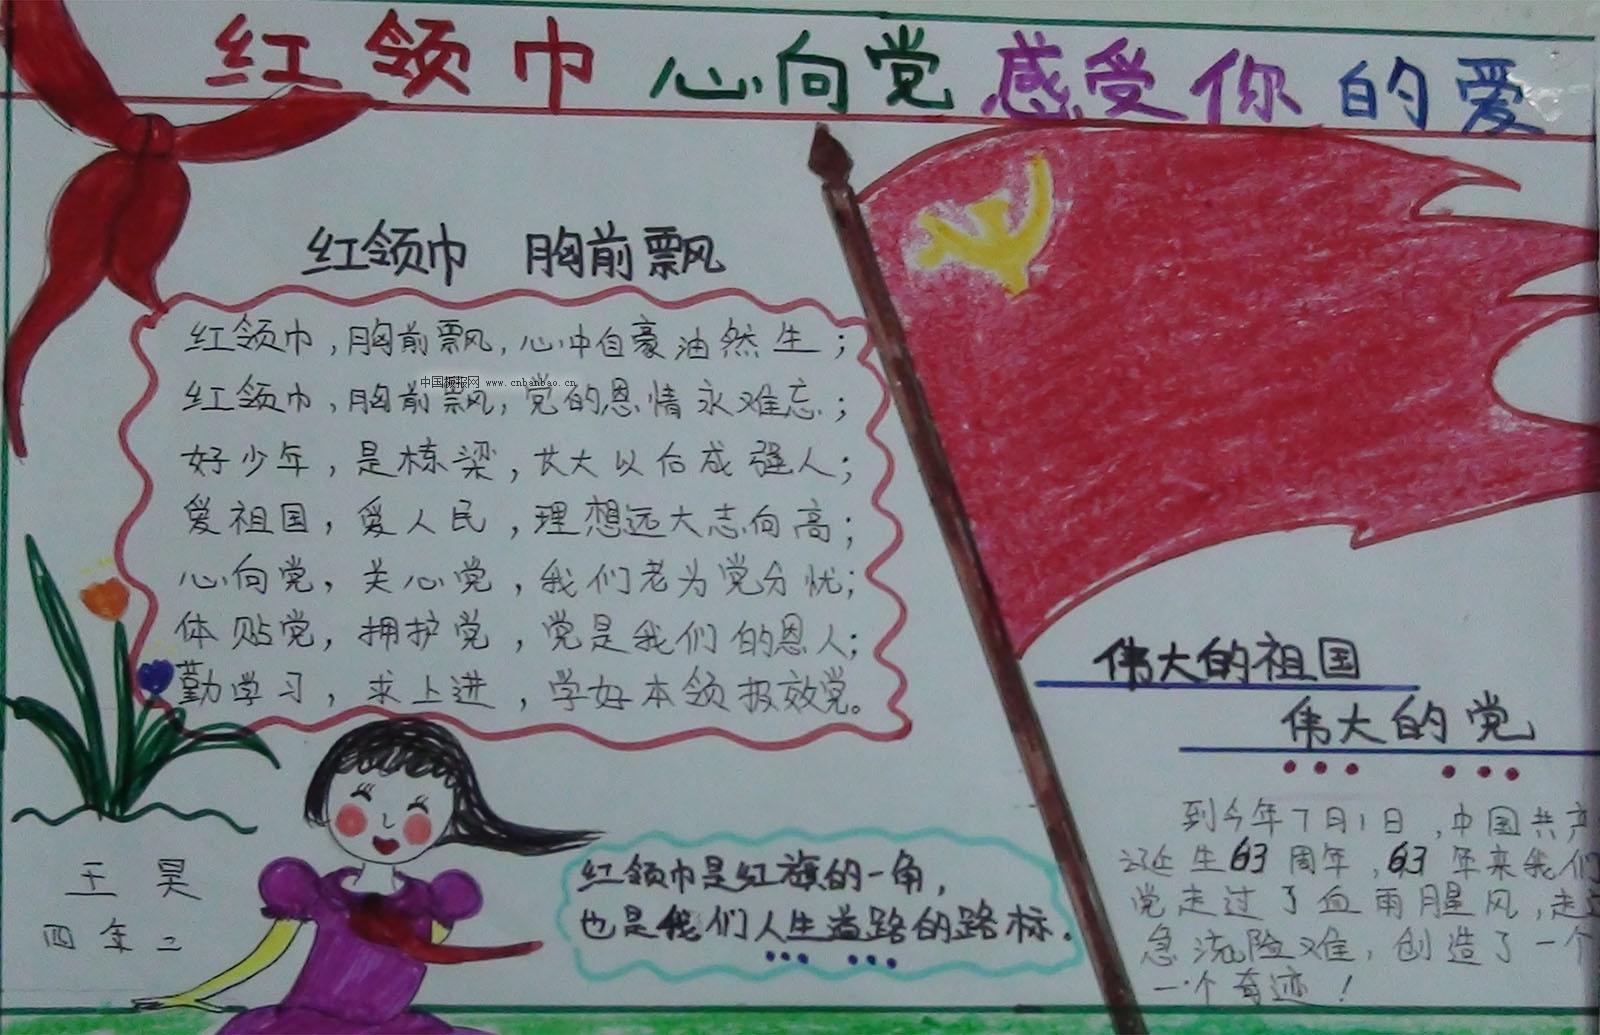 红领巾 心向党 感受你的爱
红领巾 胸前飘
红领巾,胸前飘,心中自豪油然生;
中国板报网 www.cnbanbao.cn
红领巾,胸前飘,党的恩情永难忘;
好少年,是栋梁,长大以后成强人;
爱祖国,爱人民,理想远大志向高;
心向党,关心党,我们老为党分忧;
体贴党,拥护党,党是我们的恩人;
勤学习,求上进,学好本领报效党。
伟大的祖国
伟大的党
到今年7月1日,中国共产
诞生63周年,63年来我们
党走过了血雨腥风,走
急流险难,创造了一个
一个奇迹!
红领巾是红旗的一角,
也是我们人生道路的路标.
王昊
四年二